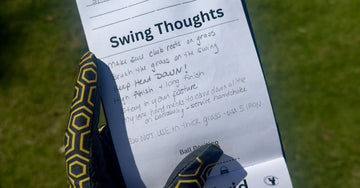 Swing Thoughts
Make sure club rests on grass
Brush the grass on the swing
Keep Head DOWN!
High finish + long finish
Stay in your posture
on backswing - service handshake
Do NOT use in thick grass - use 5 IRON
Ball Position